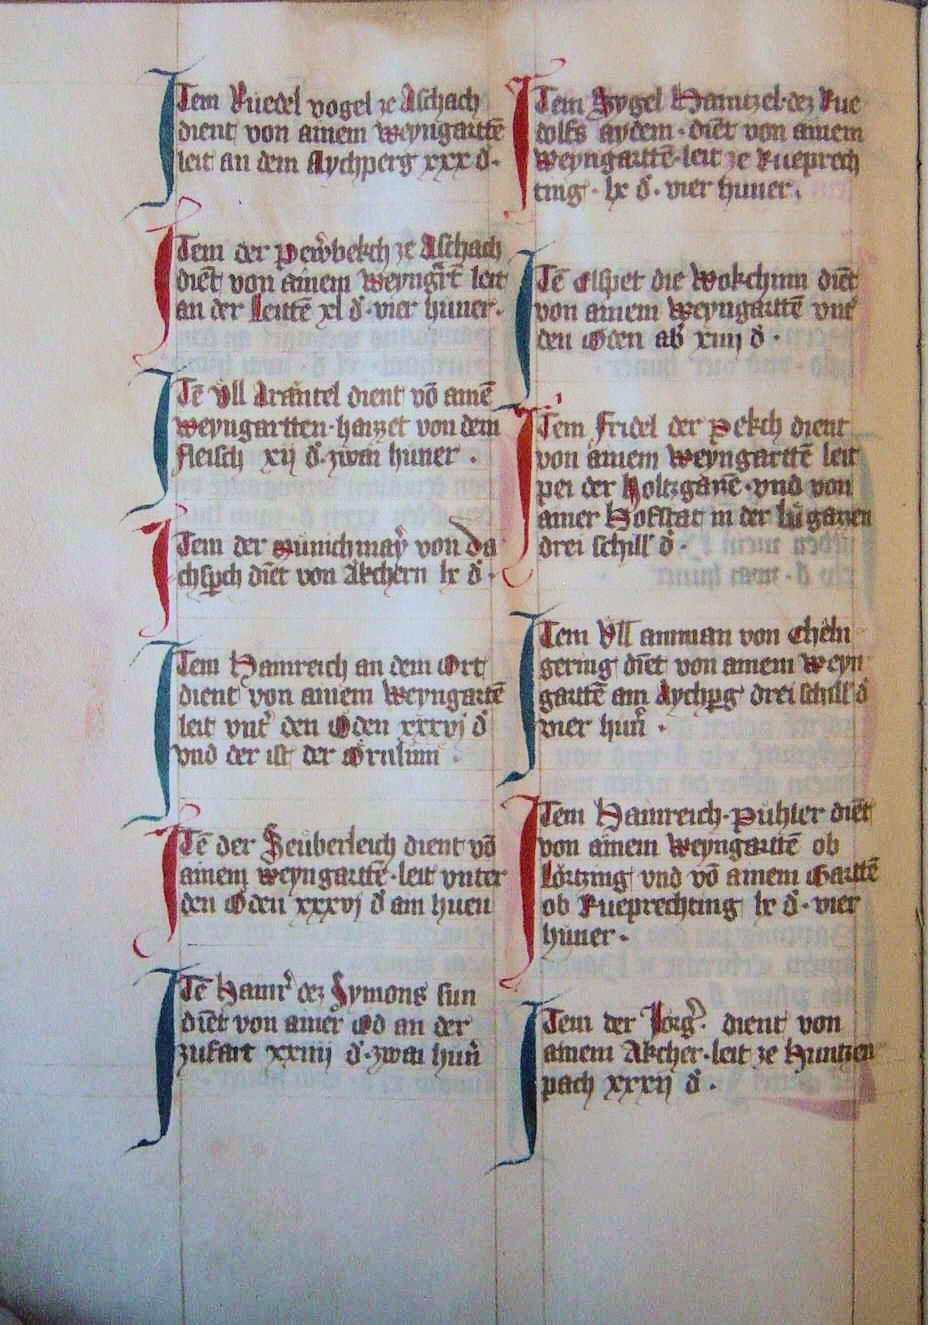 Item Ruedel vogel ze Aschach
dient von ainem weyngarttē
leit an dem Aychperg xxx d̄·
Item der ze Aschach
diēt von ainem weyngrt̄ē leit
an der Leittē xl d̄·vier huner·
Itē Ull dient vō ainē
weyngartten·haizzet von dem
fleisch xij d̄·zwai huner·
Item der von Da
chspch diēt von Akchern lx d̄·
Item Hainreich an dem Ort
dient von ainem weyngartē
leit vnt̄ den Oden xxxvj d̄
vnd der ist der
Itē der Seuberleich dient vō
ainem weyngarttē·leit vnter
den Oden xxxvj d̄ ain huen
Itē Hainr̄ dez Symons sun
diēt von ainer Od an der
zufart xxiiij d̄·zwai hun̄
Item Sygel Haintzel·dez Rue
dolfs aydem·diēt von ainem
weyngarttē·leit ze Rueprech
ting·lx d̄·vier huner·
Itē Elspet die diēt
von ainem weyngarttē vnt̄
den Oden ab xiiij d̄·
Item Fridel der Pekch dient
von ainem weyngarttē leit
pei der Holtzgazzē·vnd von
ainer Hofstat in der
drei schill d̄·
Item Ull amman von Cheln
gering diēt von ainem weyn
garttē am Aychpg drei schill d̄
vier hun̄·
Item Hainreich·Puhler diēt
von ainem weyngarttē ob
Lortzing vnd vō ainem Garttē
ob Rueprechting lx d̄·vier
huner·
Item der Jorg· dient von
ainem Akcher·leit ze Huntzen
pach xxxij d̄·